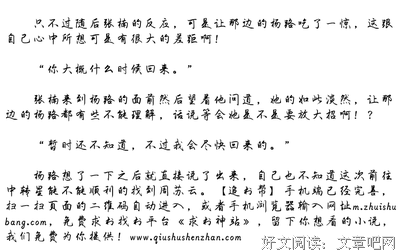 只不过随后张楠的反应，可是让那边的杨路吃了一惊，这跟
自己心中所想可是有很大的差距啊！
“你大概什么时候回来。”
张楠来到杨路的面前然后望着他问道，她的如此淡然，让那
边的杨路都有些不能理解，话说等会她是不是要放大招啊！？
“暂时还不知道，不过我会尽快回来的。”
杨路想了一下之后就直接说了出来，自己也不知道这次前往
中转星能不能顺利的找到周苏云。【追书帮】手机端已经完善，
扫一扫页面的二维码自动进入，或者手机浏览器输入网址m.zhuishu
bang.com，免费求书找书平台《求书神站》，留下你想看的小说，
我们免费为你提供！www.qiushushenzhan.com
好文阅读：文章吧网